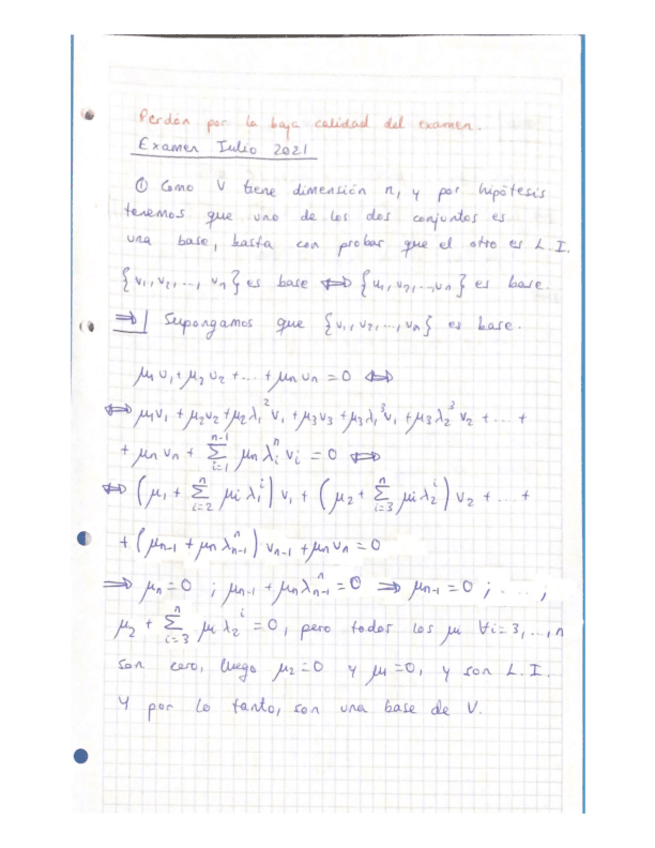 Perdón por la baja calidad del examen.
Examen Julio 2021
① Como V tiene dimensión n, y por hipótesis
tenemos que uno de los dos conjuntos es
una base, basta con probar que el otro es L.I.
{v₁, v₂, ..., vₙ} es base ⟺ {u₁, u₂, ..., uₙ} es base.
⟹| Supongamos que {v₁, v₂, ..., vₙ} es base.
μ₁u₁ + μ₂u₂ + ... + μₙuₙ = 0 ⟺
⟺ μ₁v₁ + μ₂v₂ + μ₂λ₁²v₁ + μ₃v₃ + μ₃λ₁³v₁ + μ₃λ₂³v₂ + ... +
+ μₙvₙ + Σᵢ₌₁ⁿ⁻¹ μₙλᵢⁿvᵢ = 0 ⟺
⟺ (μ₁ + Σᵢ₌₂ⁿ μᵢλ₁ⁱ) v₁ + (μ₂ + Σᵢ₌₃ⁿ μᵢλ₂ⁱ) v₂ + ... +
+ (μₙ₋₁ + μₙλₙ₋₁ⁿ) vₙ₋₁ + μₙvₙ = 0
⟹ μₙ = 0 ; μₙ₋₁ + μₙλₙ₋₁ⁿ = 0 ⟹ μₙ₋₁ = 0 ; ... ,
μ₂ + Σᵢ₌₃ⁿ μᵢλ₂ⁱ = 0, pero todos los μᵢ ∀i = 3, ..., n
son cero, luego μ₂ = 0 y μ₁ = 0, y son L.I.
Y por lo tanto, son una base de V.